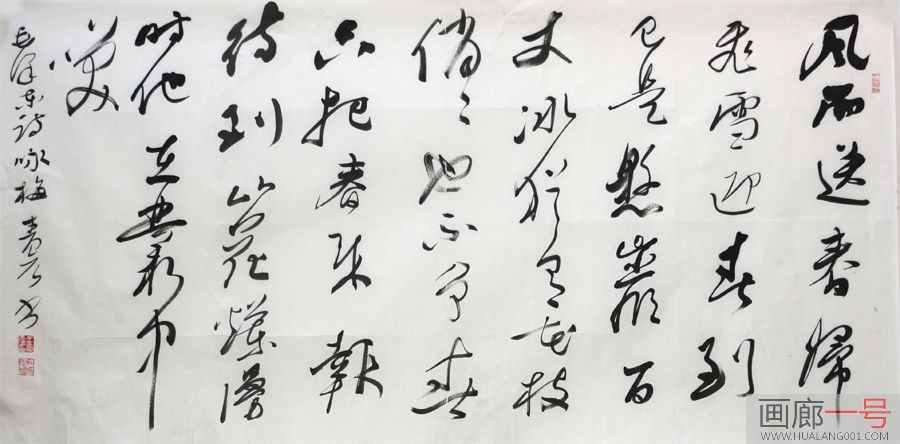 风雨送春歸
飛雪迎春到
已是懸巖百
丈冰猶有花枝
俏〻也不争春
只把春来報
待到山花爛漫
时他在叢中
笑
毛泽东诗咏梅 书
画廊一号
WWW.HUALANG001.COM